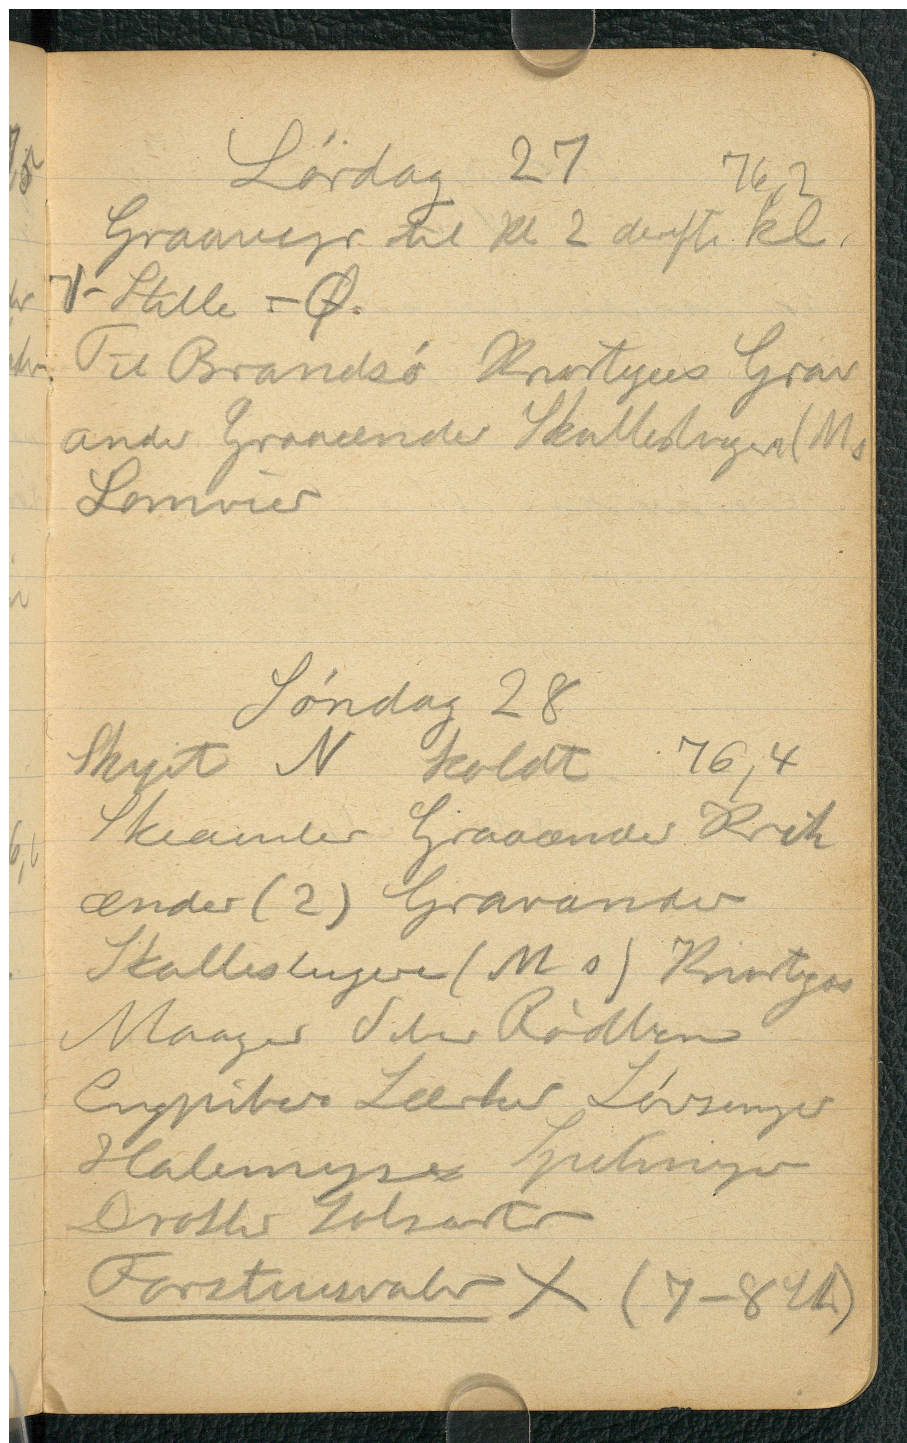 Lørdag 27 76,2
Graaveyr til Kl 2 derefter kl.
V- Stille - Ø.
Til Brandsø Knortgees Grav
ander Graaænder Skalleslugere (M s
Lomvier
Søndag 28
Skyet N koldt 76,4
Skeænder Graaænder Krik
ænder (2) Gravander
Skalleslugere (M s) Knortgæs
Maager Viber Rødben
Engpiber Lærker Løvsanger
Halemejser Spetmejser
Drosler Solsorter
Forstuesvaler X (7-8 Stk)